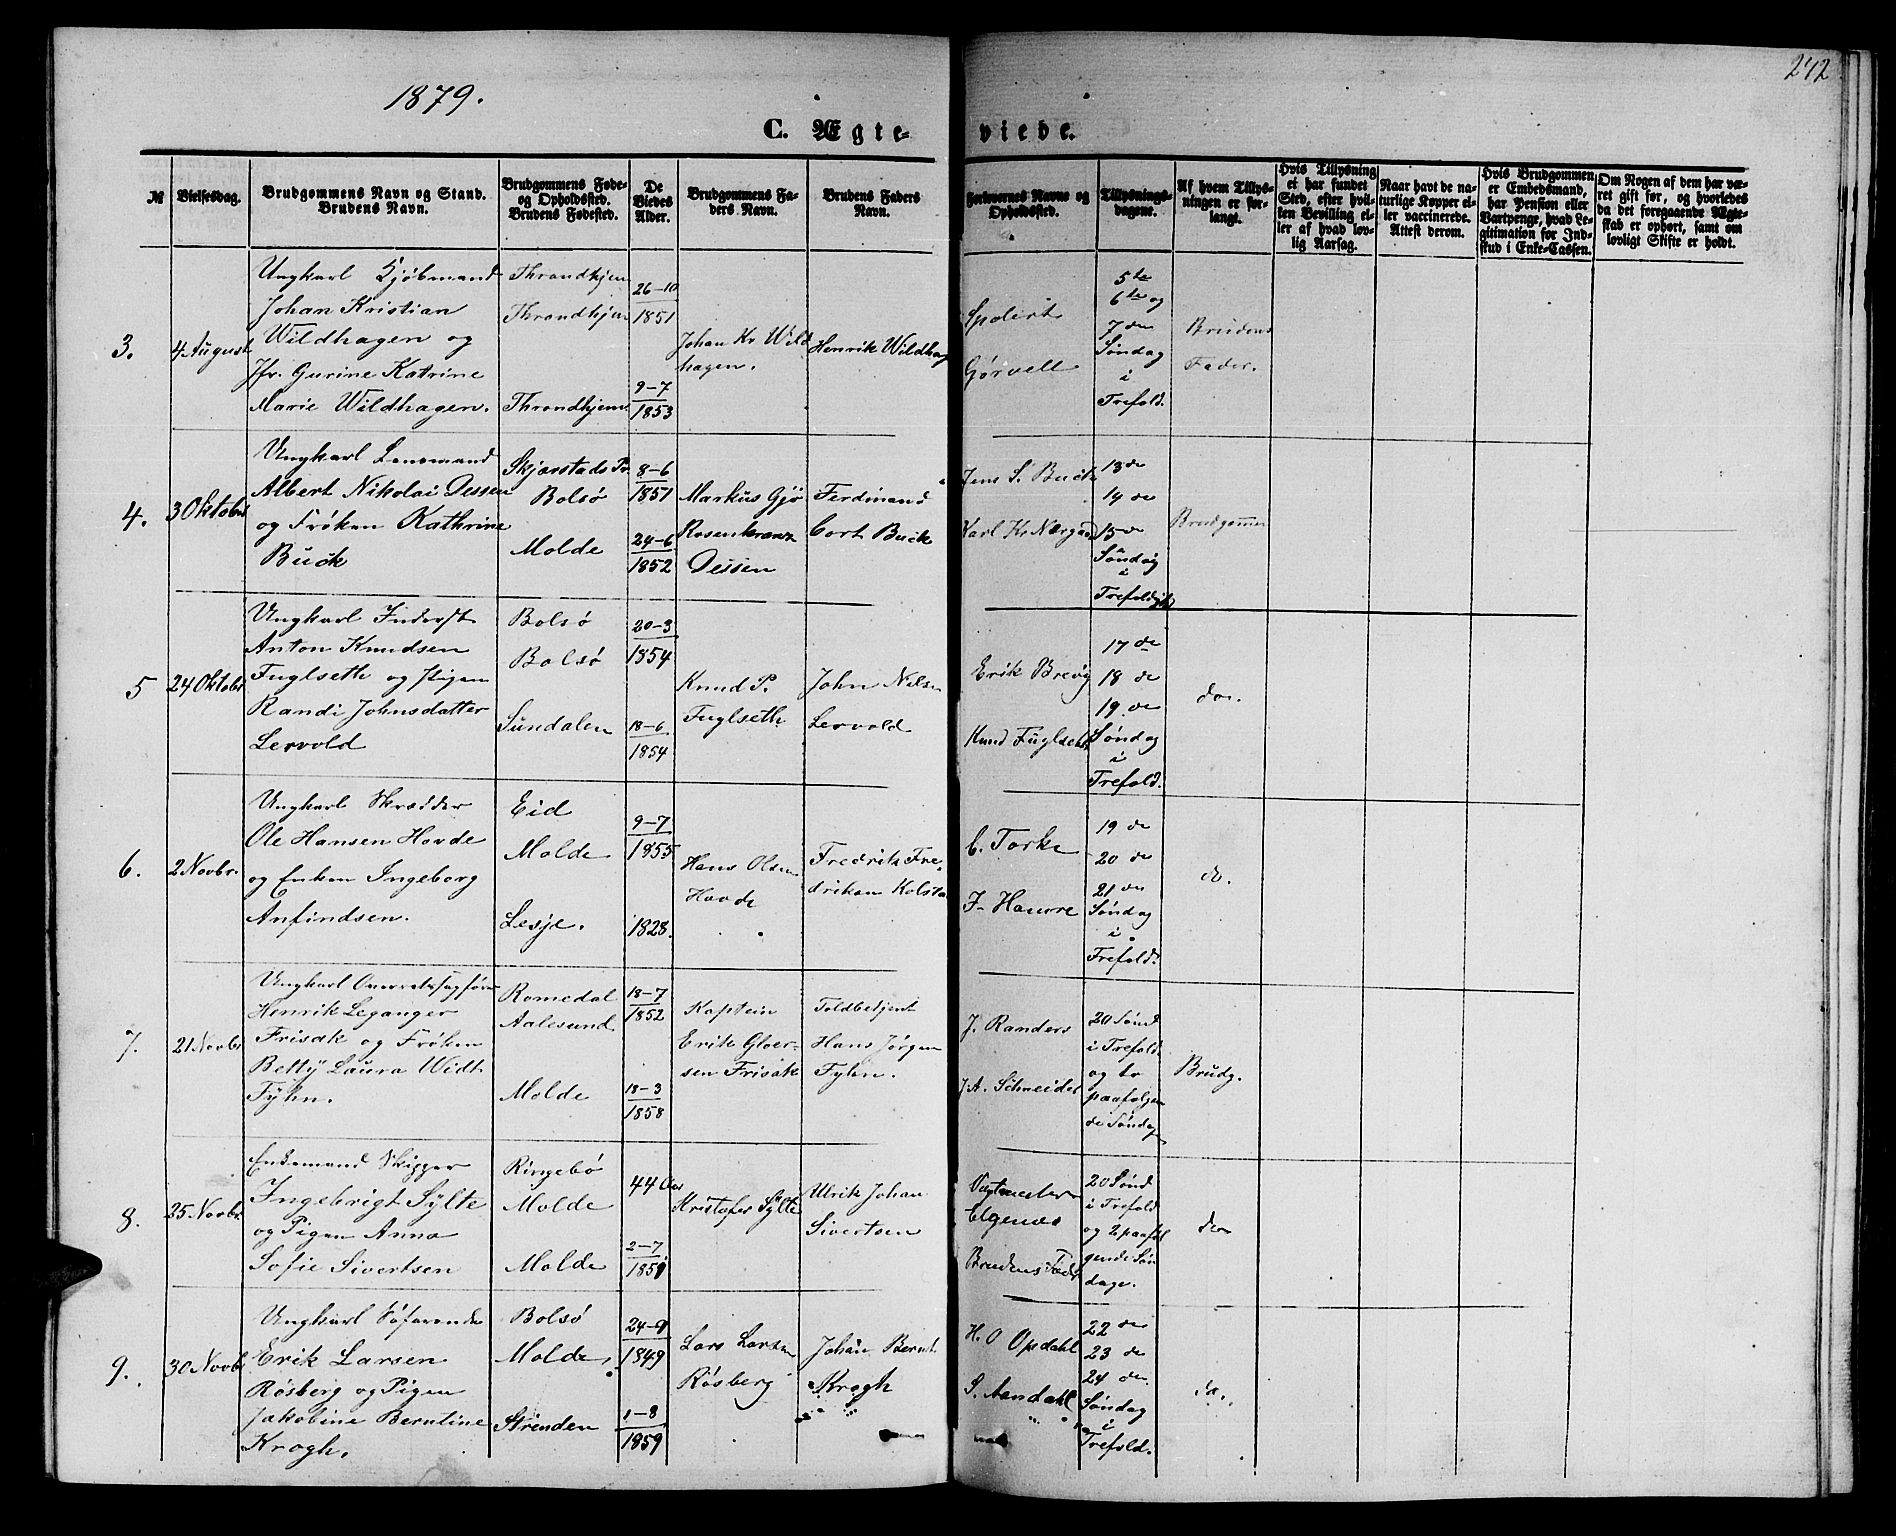 242
1879.
C. Ægteviede.
№
Vielsesdag.
Brudgommens Navn og Stand.
Brudens Navn.
Brudgommens Føde-
og Opholdssted.
Brudens Fødested.
De
Viedes
Alder.
Brudgommens Fa-
ders Navn.
Brudens Faders
Navn.
Forlovernes Navne og
Opholdssted.
Tillysnings-
dagene.
Af hvem Tillys-
ningen er for-
langt.
Hvis Tillysning
ei har fundet
Sted, efter hvil-
ken Bevilling el-
ler af hvad lov-
lig Aarsag.
Naar havt de na-
turlige Kopper el-
ler vaccinerede.
Attest derom.
Hvis Brudgommen
er Embedsmand,
har Pension eller
Vartpenge, hvad Le-
gitimation for Ind-
skud i Enke-Cassen.
Om Nogen af dem har væ-
ret gift før, og hvorledes
da det foregaaende Ægte-
skab er ophørt, samt om
lovligt Skifte er holdt.
3.
4 August
Ungkarl Kjøbmand
Johan Kristian
Wildhagen og
Jfr. Gurine Katrine
Marie Wildhagen.
Throndhjem
Throndhjem
Throndhjem
26-10
1851
9-7
1853
Johan Kr Wild
hagen.
Henrik Wildhag
Spolert
Gørvell
5te
6te og
7de
Søndag
i
Trefold.
Brudens
Fader.
4.
3 Oktober
Ungkarl Lensmand
Albert Nikolai Dessen
og Frøken Kathrine
Buck
Skjærstads Pr.
Bolsø
Molde
8-6
1851
24-6
1852
Markus Gjø
Rosenkranz
Dessen
Ferdinand
Cort Buck
Jens S. Buck
Karl Kr Nærgaa
13 de
14 de
15 de
Søndag
i
Trefoldigh
Brudgommen
5
24 Oktober
Ungkarl Inderst
Anton Knudsen
Fuglseth og Pigen
Randi Johnsdatter
Lervold
Bolsø
Bolsø
Sundalen
20-3
1854
18-6
1854
Knud P.
Fuglseth
John Nilsen
Lervold
Erik Brevig
Knud Fuglseth
17 de
18 de
19 de
Søndag
i
Trefold.
do.
6.
2 Novbr.
Ungkarl Skrædder
Ole Hansen Hovde
og Enken Ingeborg
Anfindsen.
Eid
Molde
Lesje.
9-7
1855
1828.
Hans Olsen
Hovde
Fredrik Fre-
driksen Kolsta
C. Torke
F. Hamre
19 de
20 de
21 de
Søndag
i
Trefold.
do.
7.
21 Novbr
Ungkarl Overretssagfører
Henrik Leganger
Frisak og Frøken
Betty Laura Widt
Tyhn.
Romedal
Aalesund
Molde
18-7
1852
18-3
1858
Kaptein
Erik Gloer-
sen Frisak
Toldbetjent
Hans Jørgen
Tyhn.
J. Randers
J. A. Schneider
20 Sønd
i Trefold
og to
paafølgen
de Søndage
Brudg.
8.
25 Novbr.
Enkemand Skipper
Ingebrigt Sylte
og Pigen Anna
Sofie Sivertsen
Ringebø
Molde
Molde
44 Aar
2-7
1859
Kristofer Sylte
Ulrik Johan
Sivertsen
Vagtmester
Elgenes
Brudens Fader
20 Sønd
i Trefold
og 2 paaføl
gende Søn
dage.
do
9.
30 Novbr
Ungkarl Søfarende
Erik Larsen
Røsberg og Pigen
Jakobine Berntine
Krogh.
Bolsø
Molde.
Strinden
24-9
1849
1-8
1859
Lars Larsen
Røsberg
Johan Bernt
Krogh
H. O Opdahl
S. Aandahl
22 de
23 de
24 de
Søndag
i
Trefold.
do.